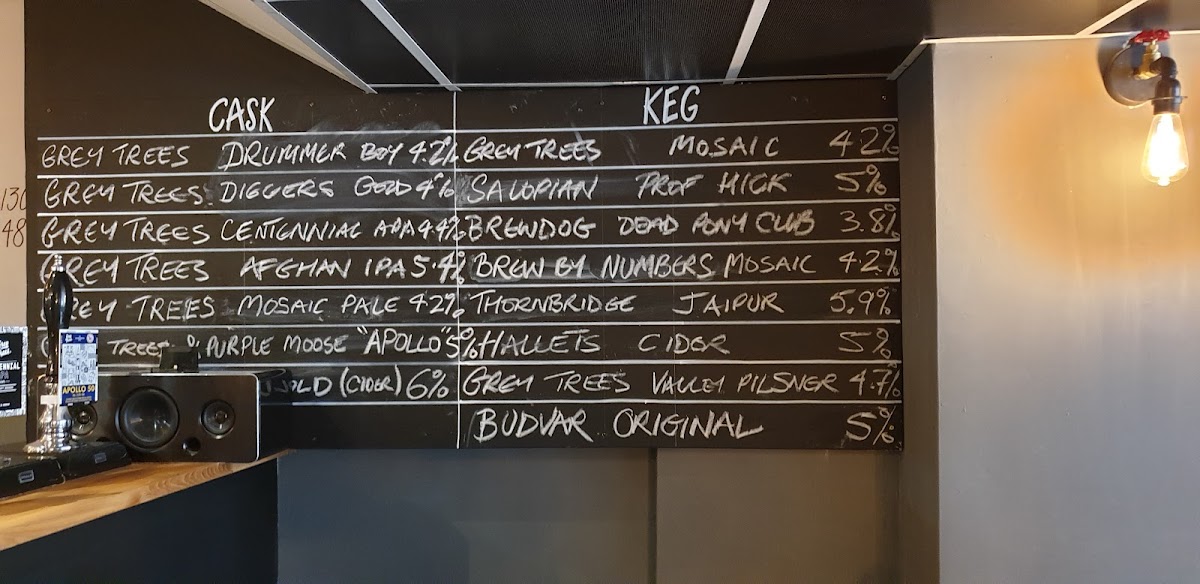 CASK
GREY TREES DRUMMER BOY 4.2%
GREY TREES DIGGERS GOLD 4%
GREY TREES CENTENNIAL APA 4.4%
GREY TREES AFGHAN IPA 5.4%
GREY TREES MOSAIC PALE 4.2%
TREES & PURPLE MOOSE "APOLLO" 5%
(CIDER) 6%
KEG
GREY TREES MOSAIC 4.2%
SALOPIAN PROF HICK 5%
BREWDOG DEAD PONY CLUB 3.8%
BREW BY NUMBERS MOSAIC 4.2%
THORNBRIDGE JAIPUR 5.9%
HALLETS CIDER 5%
GREY TREES VALLEY PILSNER 4.7%
BUDVAR ORIGINAL 5%
130
48
APOLLO 50